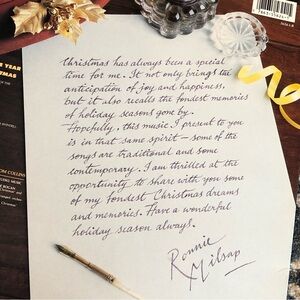 YEAR
TMAS
Christmas has always been a special
time for me. It not only brings the
anticipation of joy and happiness,
but it also recalls the fondest memories
of holiday seasons gone by.
Hopefully, this music I present to you
is in that same spirit — some of the
songs are traditional and some
contemporary. I am thrilled at the
opportunity to share with you some
of my fondest Christmas dreams
and memories. Have a wonderful
holiday season always.
Ronnie
Milsap
OM COLLINS